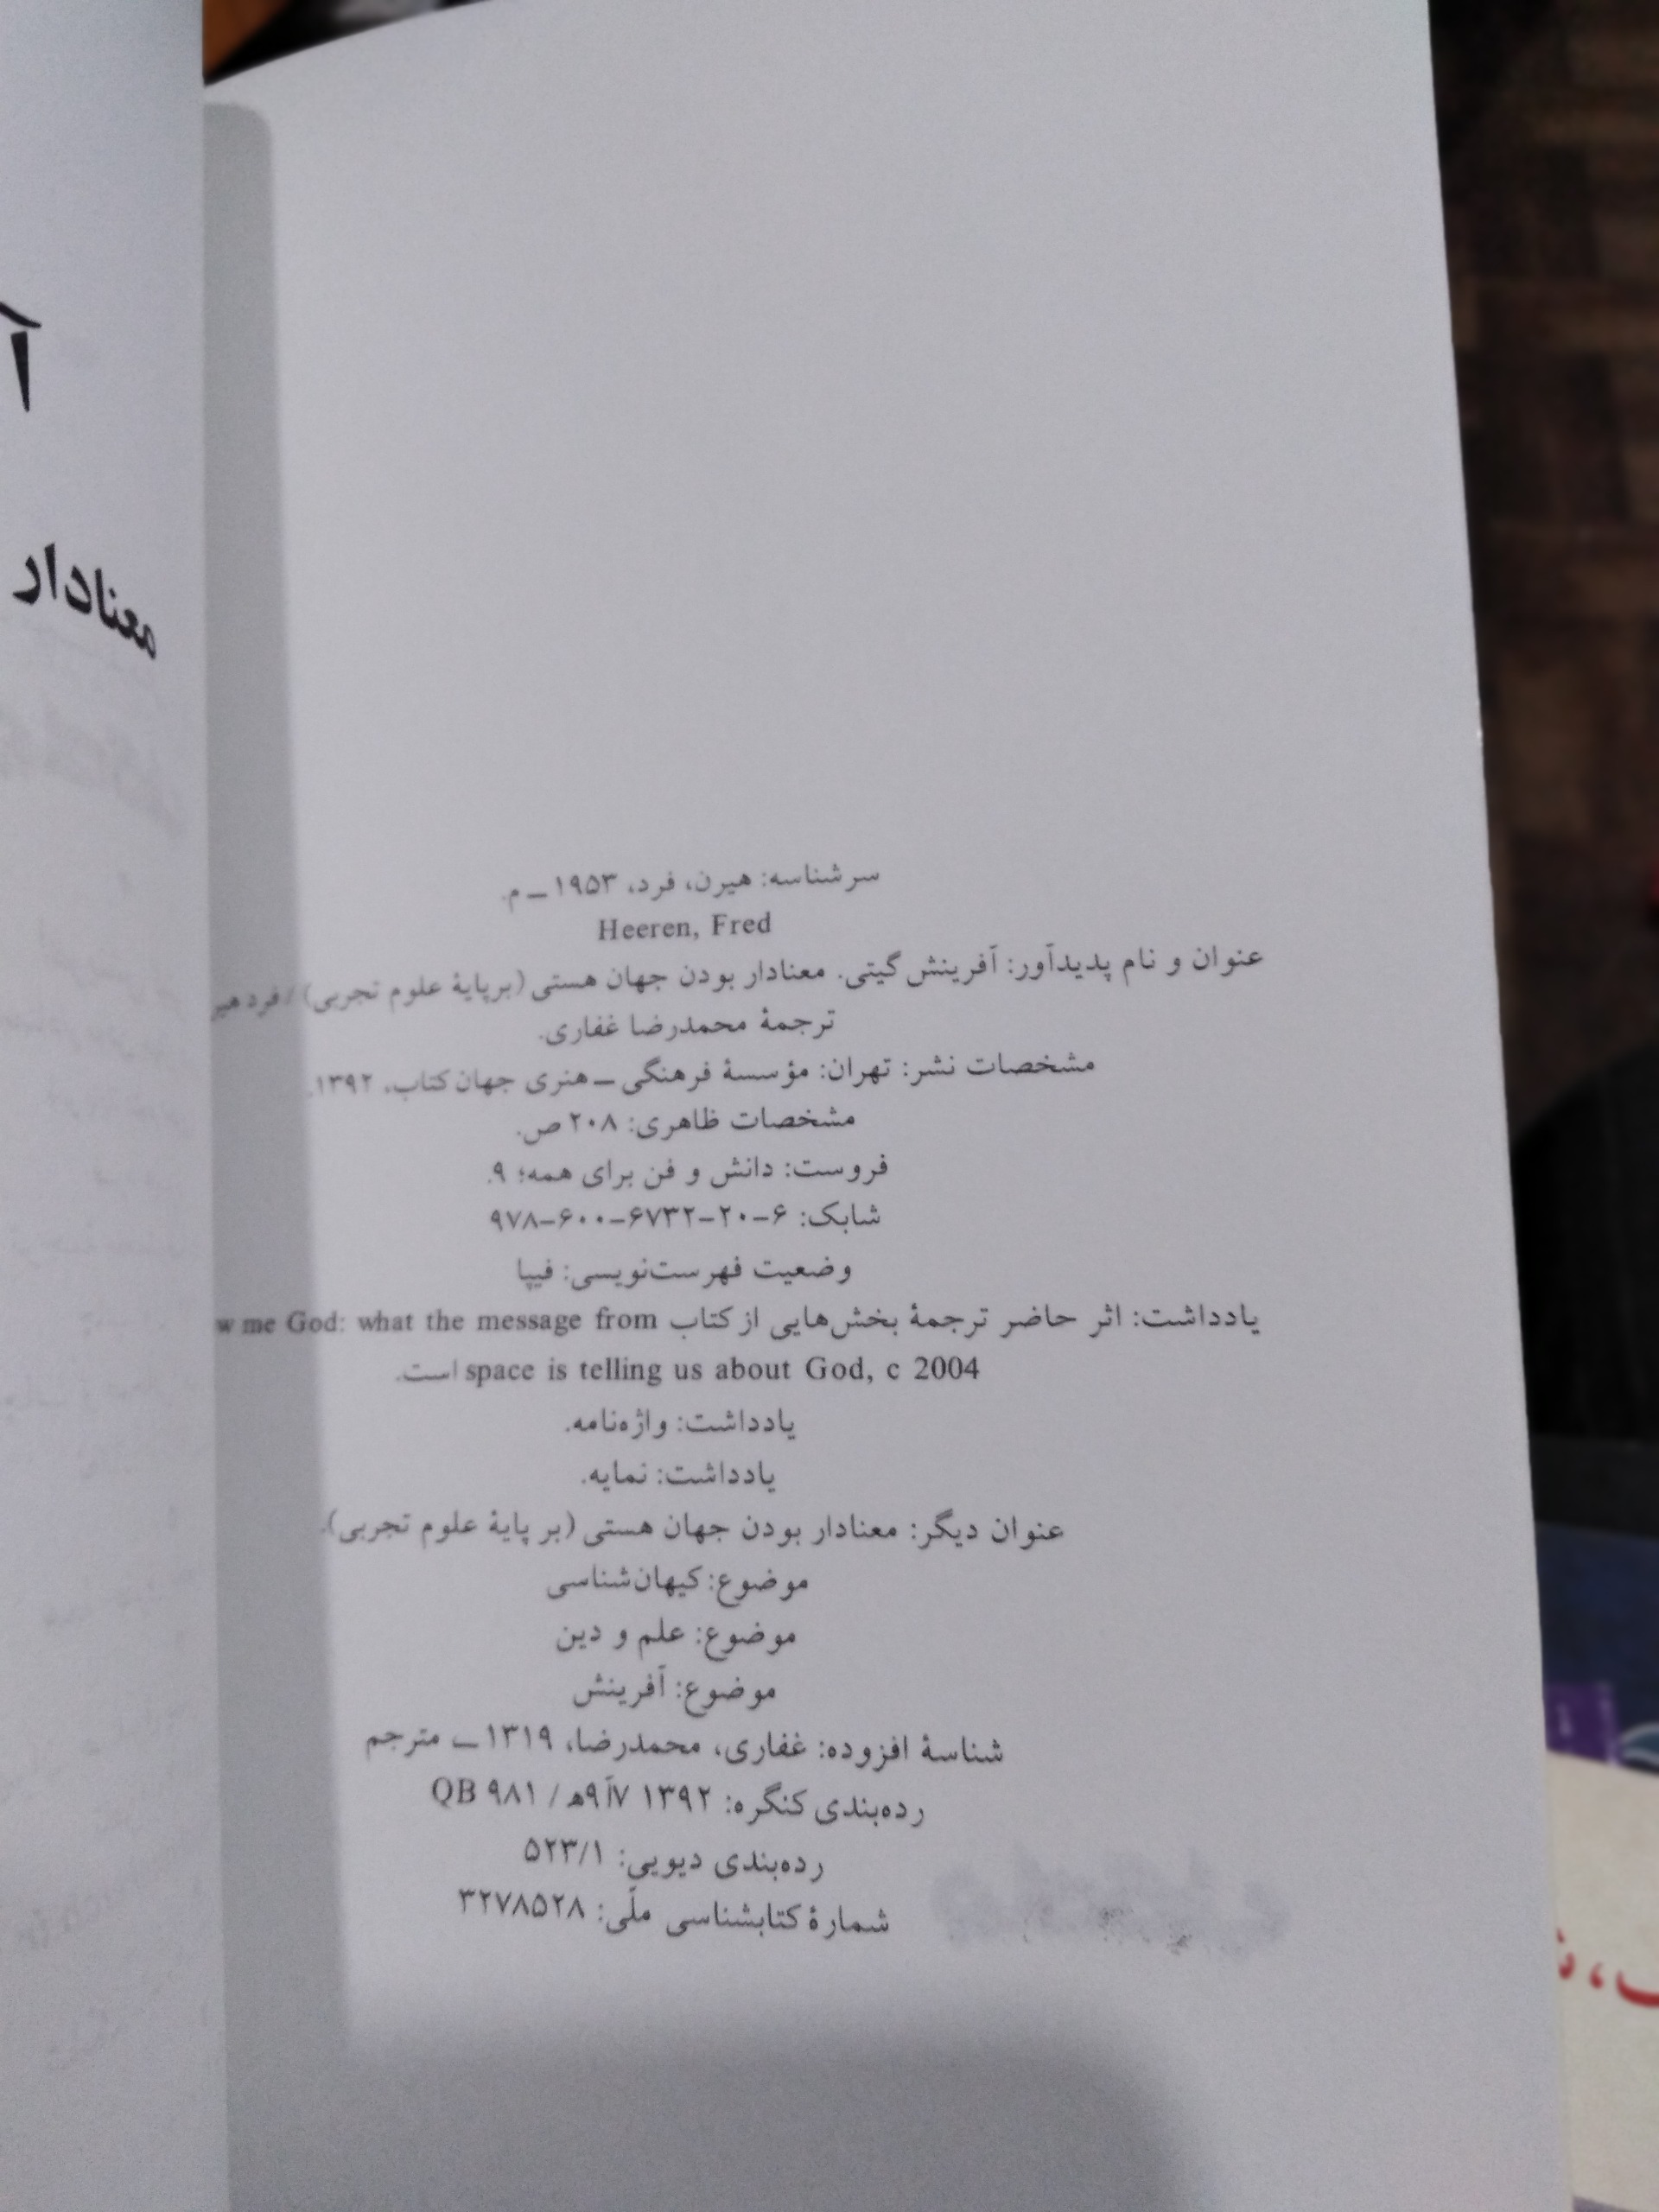 سرشناسه: هیرن، فرد، ۱۹۵۳ ـ م.
Heeren, Fred
عنوان و نام پدیدآور: آفرینش گیتی. معنادار بودن جهان هستی (برپایهٔ علوم تجربی) / فرد هیر
ترجمهٔ محمدرضا غفاری.
مشخصات نشر: تهران: مؤسسهٔ فرهنگی ـ هنری جهان کتاب، ۱۳۹۲.
مشخصات ظاهری: ۲۰۸ ص.
فروست: دانش و فن برای همه؛ ۹.
شابک: ۶-۲۰-۶۷۳۲-۶۰۰-۹۷۸
وضعیت فهرست‌نویسی: فیپا
یادداشت: اثر حاضر ترجمهٔ بخش‌هایی از کتاب w me God: what the message from
space is telling us about God, c 2004 است.
یادداشت: واژه‌نامه.
یادداشت: نمایه.
عنوان دیگر: معنادار بودن جهان هستی (بر پایهٔ علوم تجربی).
موضوع: کیهان‌شناسی
موضوع: علم و دین
موضوع: آفرینش
شناسهٔ افزوده: غفاری، محمدرضا، ۱۳۱۹ ـ مترجم
رده‌بندی کنگره: ۱۳۹۲ ۷آ۹ه‍ / QB ۹۸۱
رده‌بندی دیویی: ۵۲۳/۱
شمارهٔ کتابشناسی ملّی: ۳۲۷۸۵۲۸
آ
معنادار